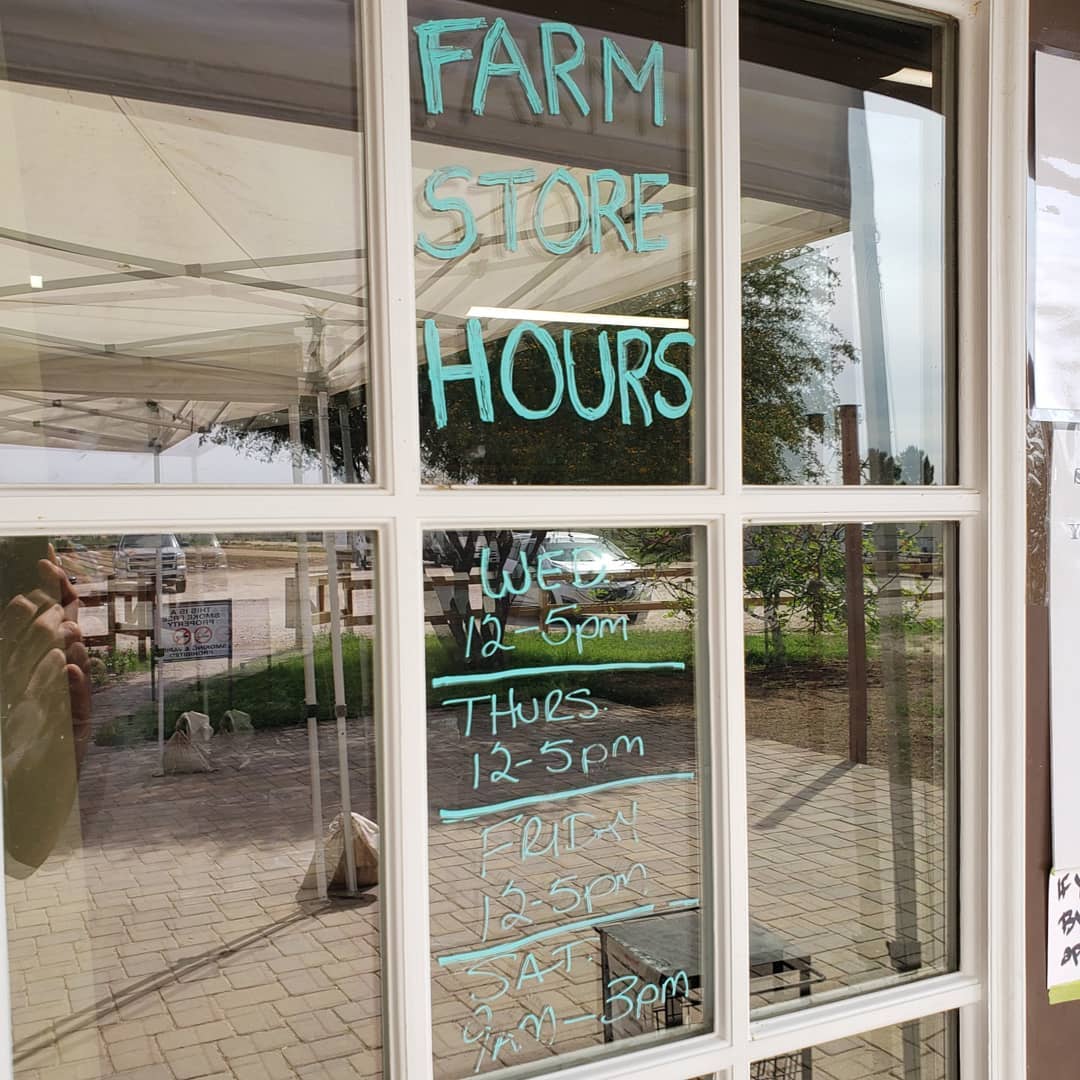 FARM
STORE
HOURS
WED
12-5pm
THURS.
12-5pm
FRIDAY
12-5pm
SAT.
9AM-3pm
THIS IS A
SMOKE FREE
PROPERTY
SMOKING & VAPING
PROHIBITED
IF